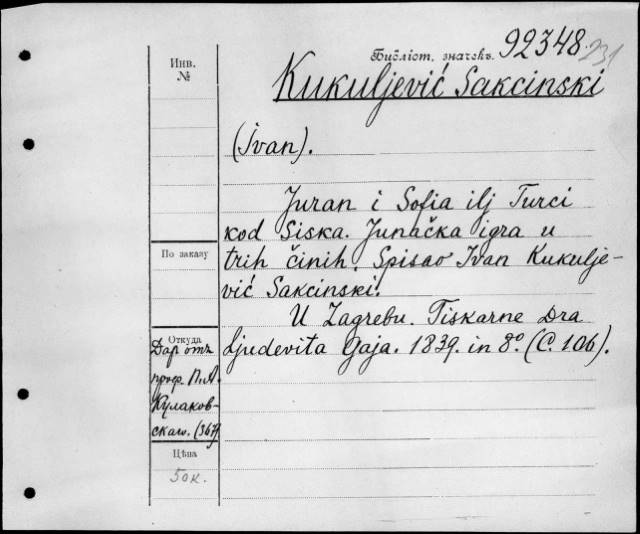 Библіот. значекъ. 92348. 231
Инв. №
Kukuljević Sakcinski
(Ivan).
Juran i Sofia ilj Turci
kod Siska. Junačka igra u
trih činih. Spisao Ivan Kukulje-
vić Sakcinski.
U Zagrebu. Tiskarne Dra
Ljudevita Gaja. 1839. in 8º. (C. 106).
По заказу
Откуда
Даръ отъ
проф. П. А.
Кулаков-
скаго. (367)
Цѣна
50 к.